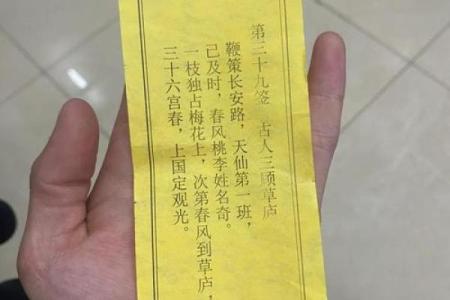 第三十九签 古人三顾草庐
鞭策长安路，天仙第一班，
己及时，春风桃李姓名奇。
一枝独占梅花上，次第春风到草庐，
三十六宫春，上国定观光。